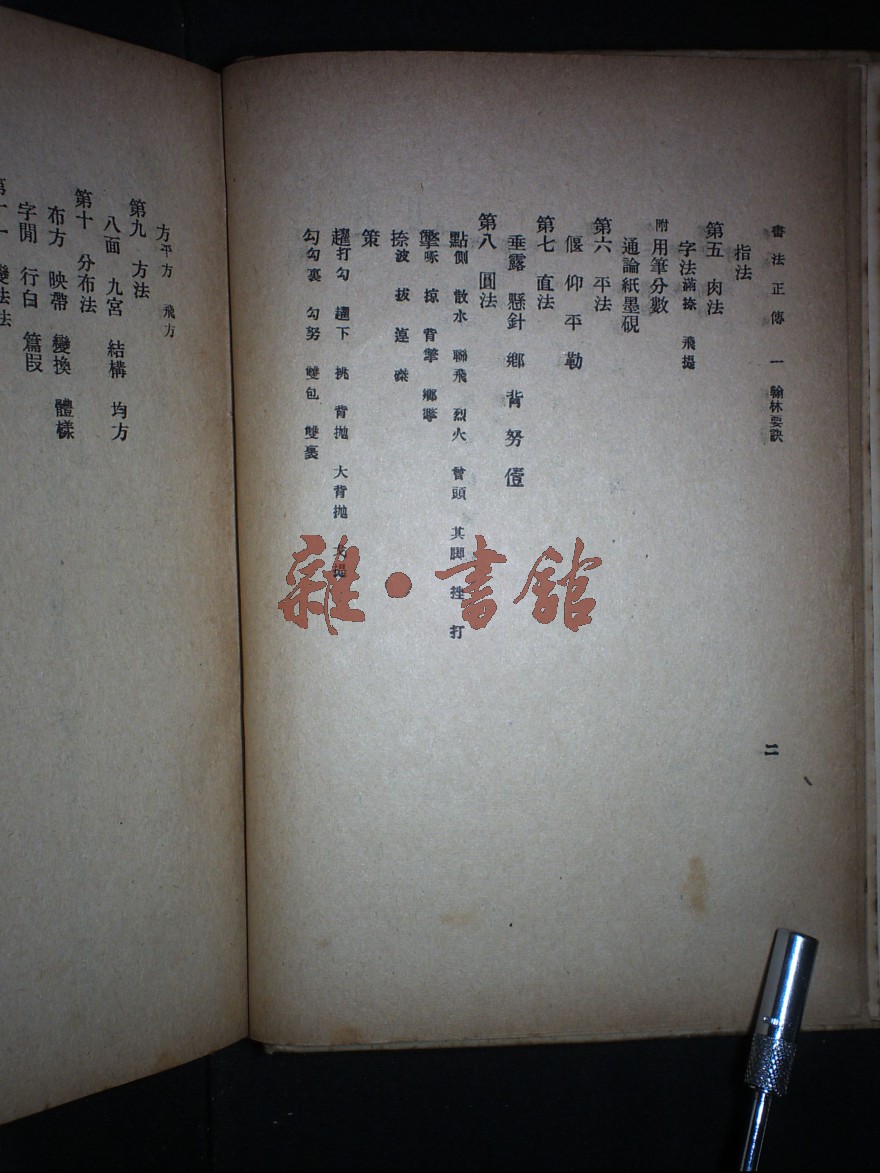 書法正傳 一 翰林要訣
二
指法
第五 肉法
字法 滿捺 飛提
附 用筆分數
通論紙墨硯
第六 平法
偃 仰 平 勒
第七 直法
垂露 懸針 鄉 背 努
第八 圓法
點 側 散水 聯飛 烈火 曾頭 其脚 拴 打
啄 掠 背擎
捺 波 拔 磔
策
趯 打勾 趯下 挑 背拋 大背拋
勾 勾裏 勾努 雙包 雙裏
雜·書館
方 平方 飛方
第九 方法
八面 九宮 結構 均方
第十 分布法
布方 映帶 變換 體樣
字間 行白 篇段
第十一 變法